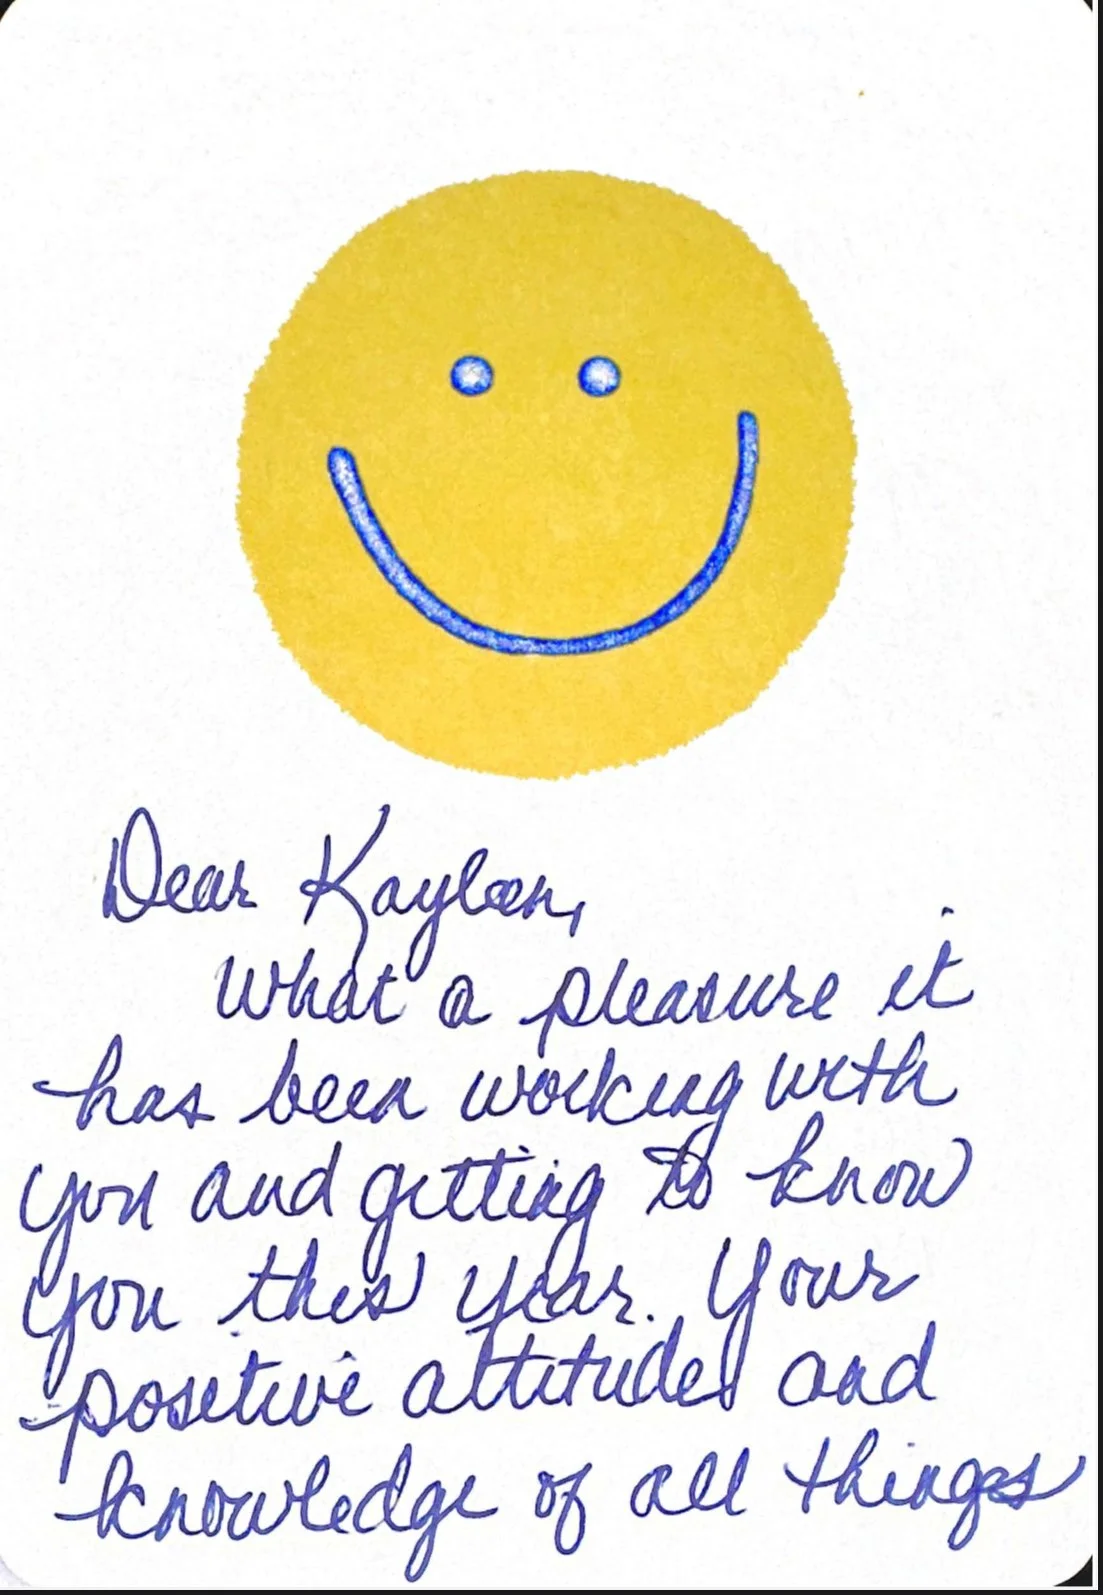 Dear Kayleen,
What a pleasure it
has been working with
you and getting to know
you this year. Your
positive attitude and
knowledge of all things